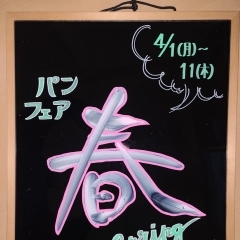 4/1(月)～
11(木)
パン
フェア
春
Spring